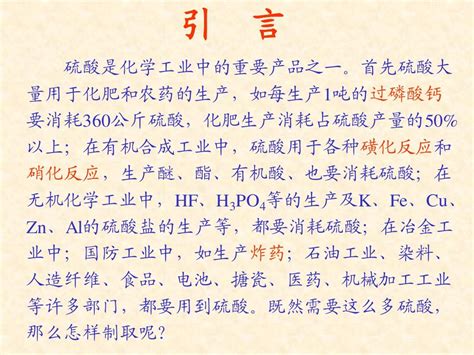 引 言
硫酸是化学工业中的重要产品之一。首先硫酸大
量用于化肥和农药的生产，如每生产1吨的过磷酸钙
要消耗360公斤硫酸，化肥生产消耗占硫酸产量的50%
以上；在有机合成工业中，硫酸用于各种磺化反应和
硝化反应，生产醚、酯、有机酸、也要消耗硫酸；在
无机化学工业中，HF、H₃PO₄等的生产及K、Fe、Cu、
Zn、Al的硫酸盐的生产等，都要消耗硫酸；在冶金工
业中；国防工业中，如生产炸药；石油工业、染料、
人造纤维、食品、电池、搪瓷、医药、机械加工工业
等许多部门，都要用到硫酸。既然需要这么多硫酸，
那么怎样制取呢？